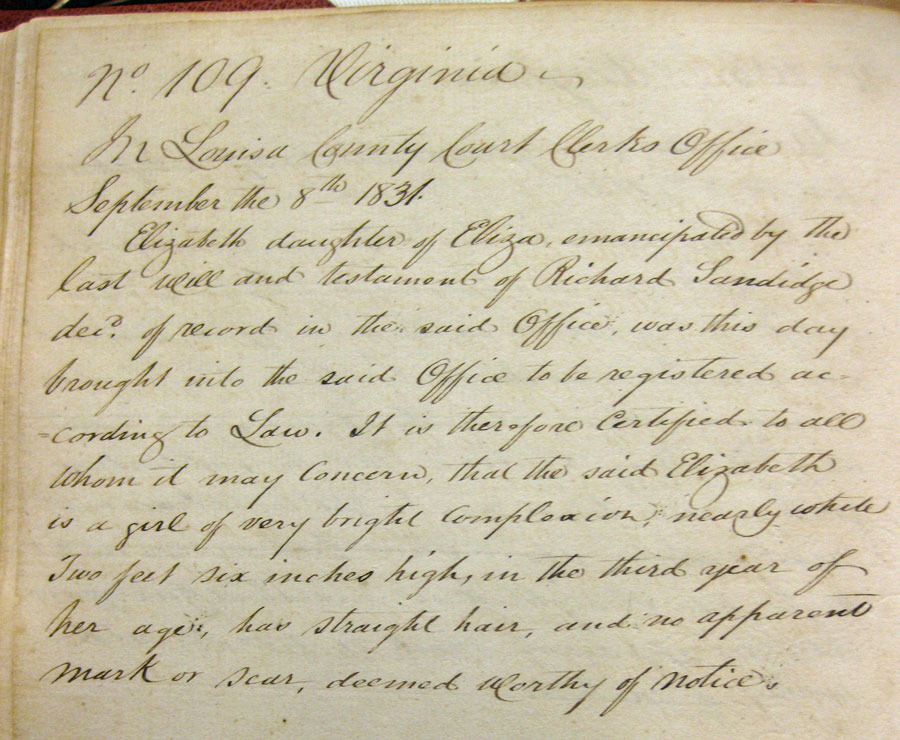 No. 109. Virginia
In Louisa County Court Clerks Office
September the 8th 1831.
Elizabeth daughter of Eliza, emancipated by the
last will and testament of Richard Sandidge
decd. of record in the said Office, was this day
brought into the said Office to be registered ac-
=cording to Law. It is therefore Certified to all
whom it may Concern, that the said Elizabeth
is a girl of very bright Complexion, nearly white
Two feet six inches high, in the third year of
her age, has straight hair, and no apparent
mark or scar, deemed worthy of notice.